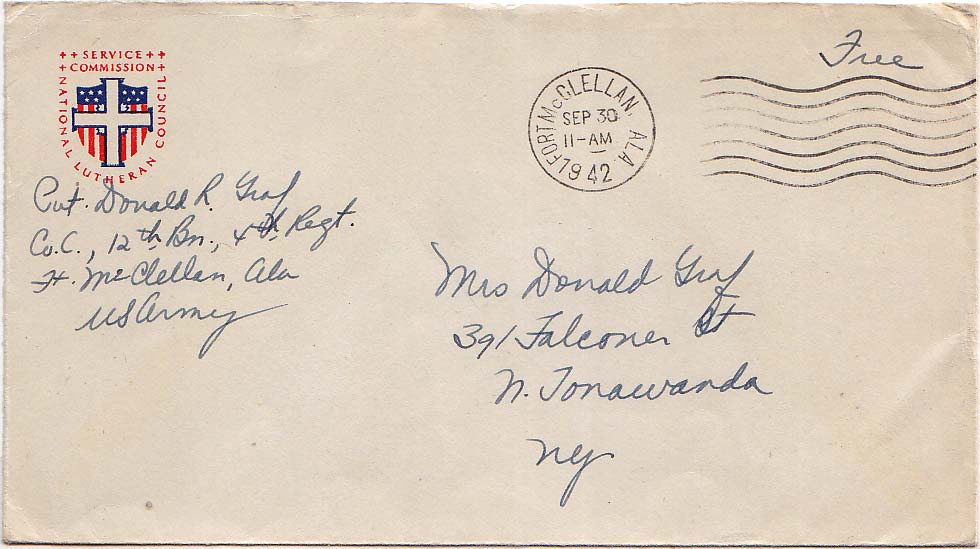 ++ SERVICE ++
+ COMMISSION +
NATIONAL LUTHERAN COUNCIL
Free
FORT McCLELLAN, ALA
SEP 30
11-AM
1942
Pvt. Donald R. Graf
Co. C., 12th Bn., 4th Regt.
Ft. McClellan, Ala
US Army
Mrs Donald Graf
391 Falconer St
N. Tonawanda
NY